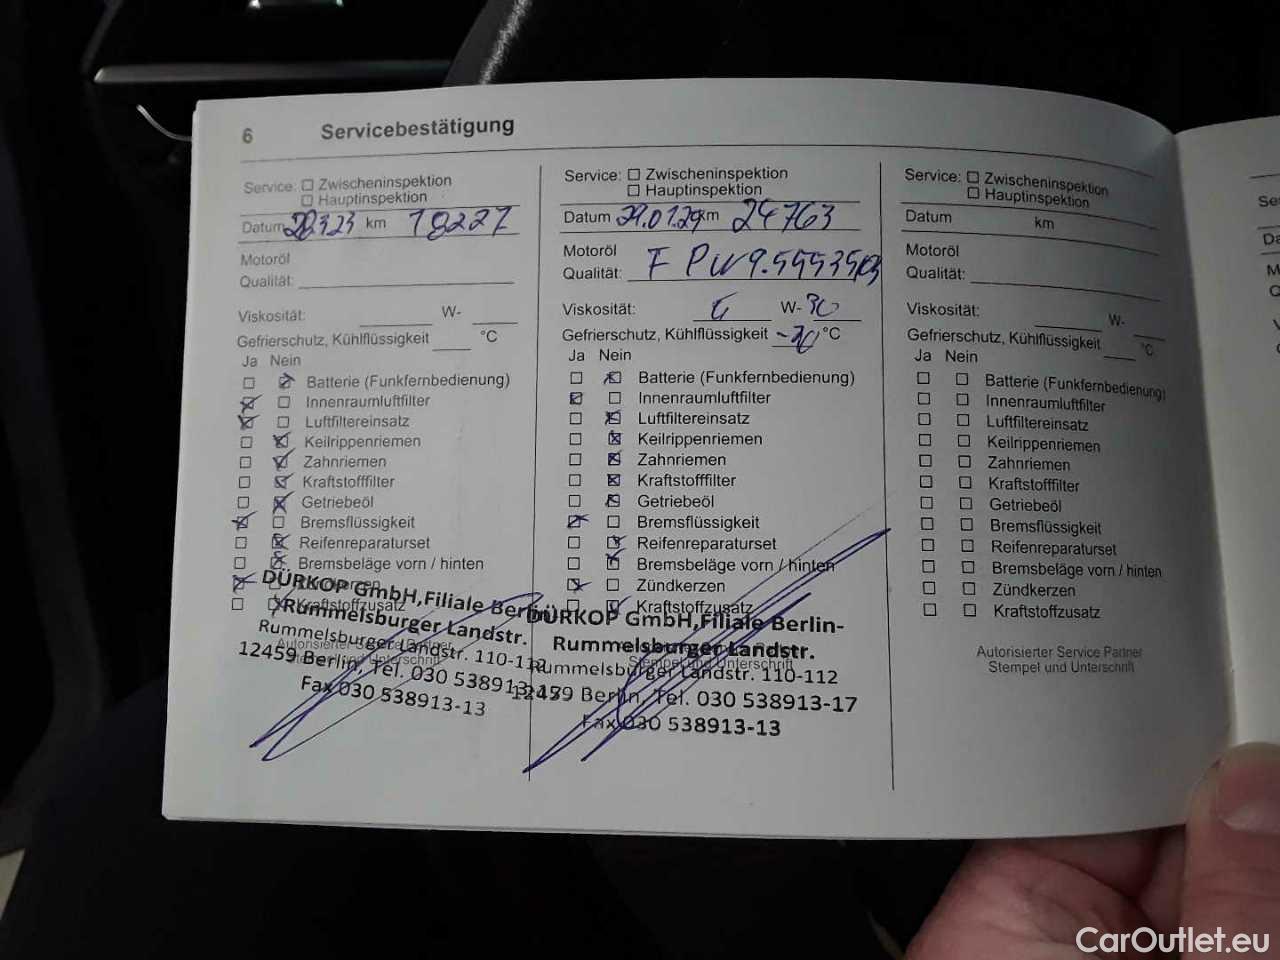 6 Servicebestätigung
Service: Zwischeninspektion
Hauptinspektion
Datum 28.3.23 km 18227
Motoröl
Qualität:
Viskosität: W-
Gefrierschutz, Kühlflüssigkeit °C
Ja Nein
Batterie (Funkfernbedienung)
Innenraumluftfilter
Luftfiltereinsatz
Keilrippenriemen
Zahnriemen
Kraftstofffilter
Getriebeöl
Bremsflüssigkeit
Reifenreparaturset
Bremsbeläge vorn / hinten
Kraftstoffzusatz
DÜRKOP GmbH,Filiale Berlin-
Rummelsburger Landstr.
Rummelsburger Landstr. 110-112
12459 Berlin, Tel. 030 538913-17
Fax 030 538913-13
Autorisierter Service Partner
Service: Zwischeninspektion
Hauptinspektion
Datum 29.01.29 km 24763
Motoröl
Qualität:
Viskosität: W-30
Gefrierschutz, Kühlflüssigkeit -30 °C
Ja Nein
Batterie (Funkfernbedienung)
Innenraumluftfilter
Luftfiltereinsatz
Keilrippenriemen
Zahnriemen
Kraftstofffilter
Getriebeöl
Bremsflüssigkeit
Reifenreparaturset
Bremsbeläge vorn / hinten
Zündkerzen
Kraftstoffzusatz
DÜRKOP GmbH,Filiale Berlin-
Rummelsburger Landstr.
Stempel und Unterschrift
Rummelsburger Landstr. 110-112
12459 Berlin, Tel. 030 538913-17
Fax 030 538913-13
Service: Zwischeninspektion
Hauptinspektion
Datum km
Motoröl
Qualität:
Viskosität: W-
Gefrierschutz, Kühlflüssigkeit °C
Ja Nein
Batterie (Funkfernbedienung)
Innenraumluftfilter
Luftfiltereinsatz
Keilrippenriemen
Zahnriemen
Kraftstofffilter
Getriebeöl
Bremsflüssigkeit
Reifenreparaturset
Bremsbeläge vorn / hinten
Zündkerzen
Kraftstoffzusatz
Autorisierter Service Partner
Stempel und Unterschrift
CarOutlet.eu